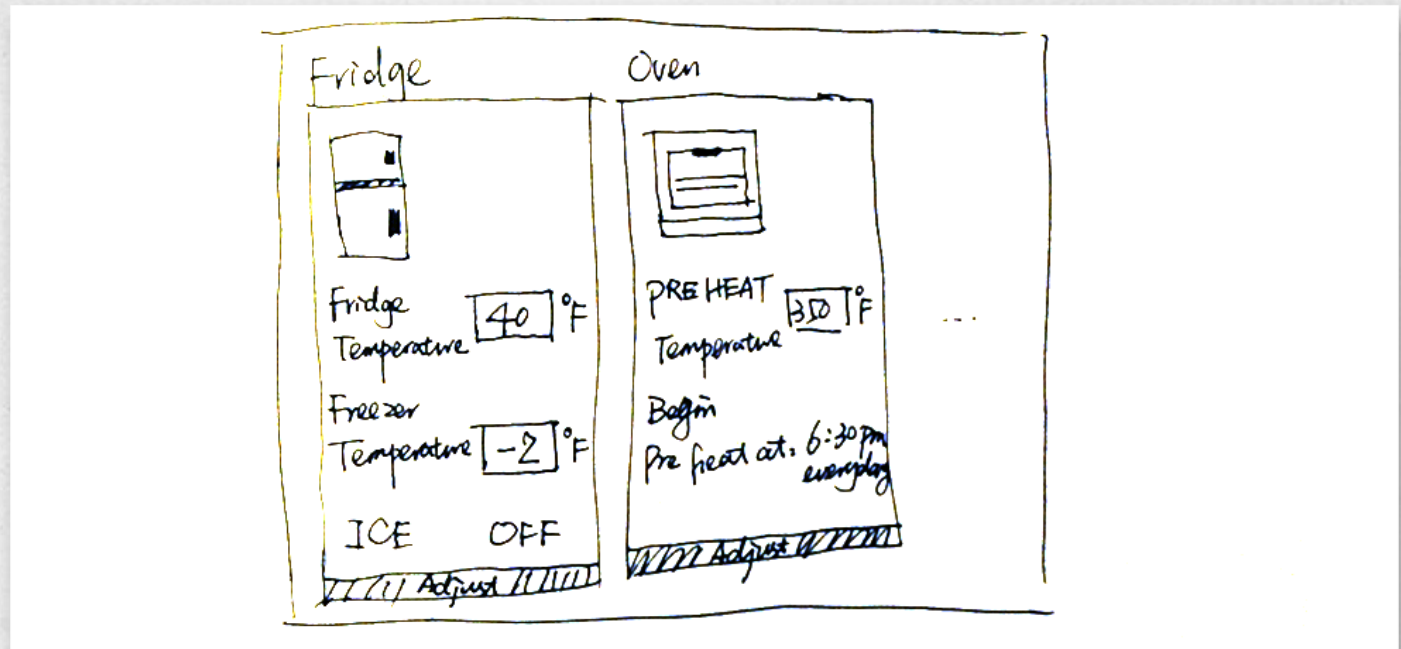 Fridge
Oven
Fridge
Temperature
40 °F
Freezer
Temperature
-2 °F
ICE OFF
Adjust
PREHEAT
Temperature
350 °F
Begin
Pre heat at: 6:30 pm
everyday
Adjust
...